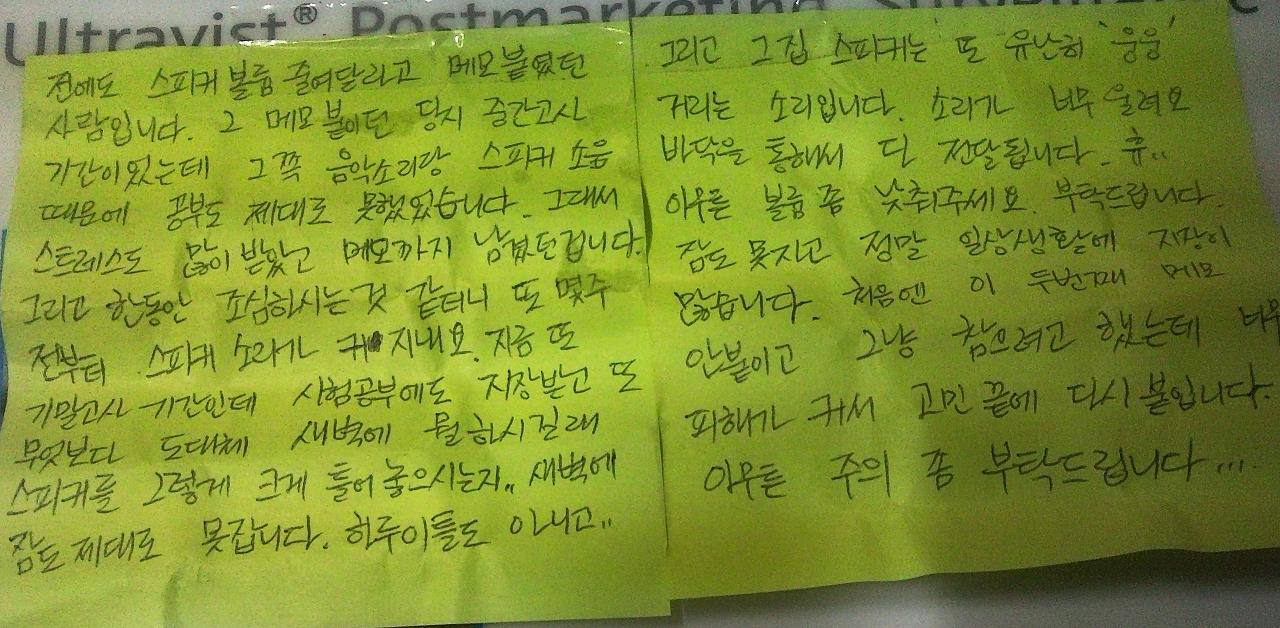 Ultravist® Postmarketing Surveillance
전에도 스피커 볼륨 줄여달라고 메모 붙였던
사람입니다. 그 메모 붙이던 당시 중간고사
기간이있는데 그쪽 음악소리랑 스피커 소음
때문에 공부도 제대로 못했었습니다. 그래서
스트레스도 많이 받았고 메모까지 남겼던겁니다.
그리고 한동안 조심하시는것 같더니 또 몇주
전부터 스피커 소리가 커지네요. 지금 또
기말고사 기간인데 시험공부에도 지장받고 또
무엇보다 도대체 새벽에 뭘 하시길래
스피커를 그렇게 크게 틀어놓으시는지.. 새벽에
잠도 제대로 못잡니다. 하루이틀도 아니고..
그리고 그집 스피커는 또 유난히 '웅웅'
거리는 소리입니다. 소리가 너무 울려요
바닥을 통해서 다 전달됩니다. 휴..
아무튼 볼륨 좀 낮춰주세요. 부탁드립니다.
잠도 못자고 정말 일상생활에 지장이
많습니다. 처음엔 이 두번째 메모
안붙이고 그냥 참으려고 했는데 너무
피해가 커서 고민 끝에 다시 붙입니다.
아무튼 주의 좀 부탁드립니다...